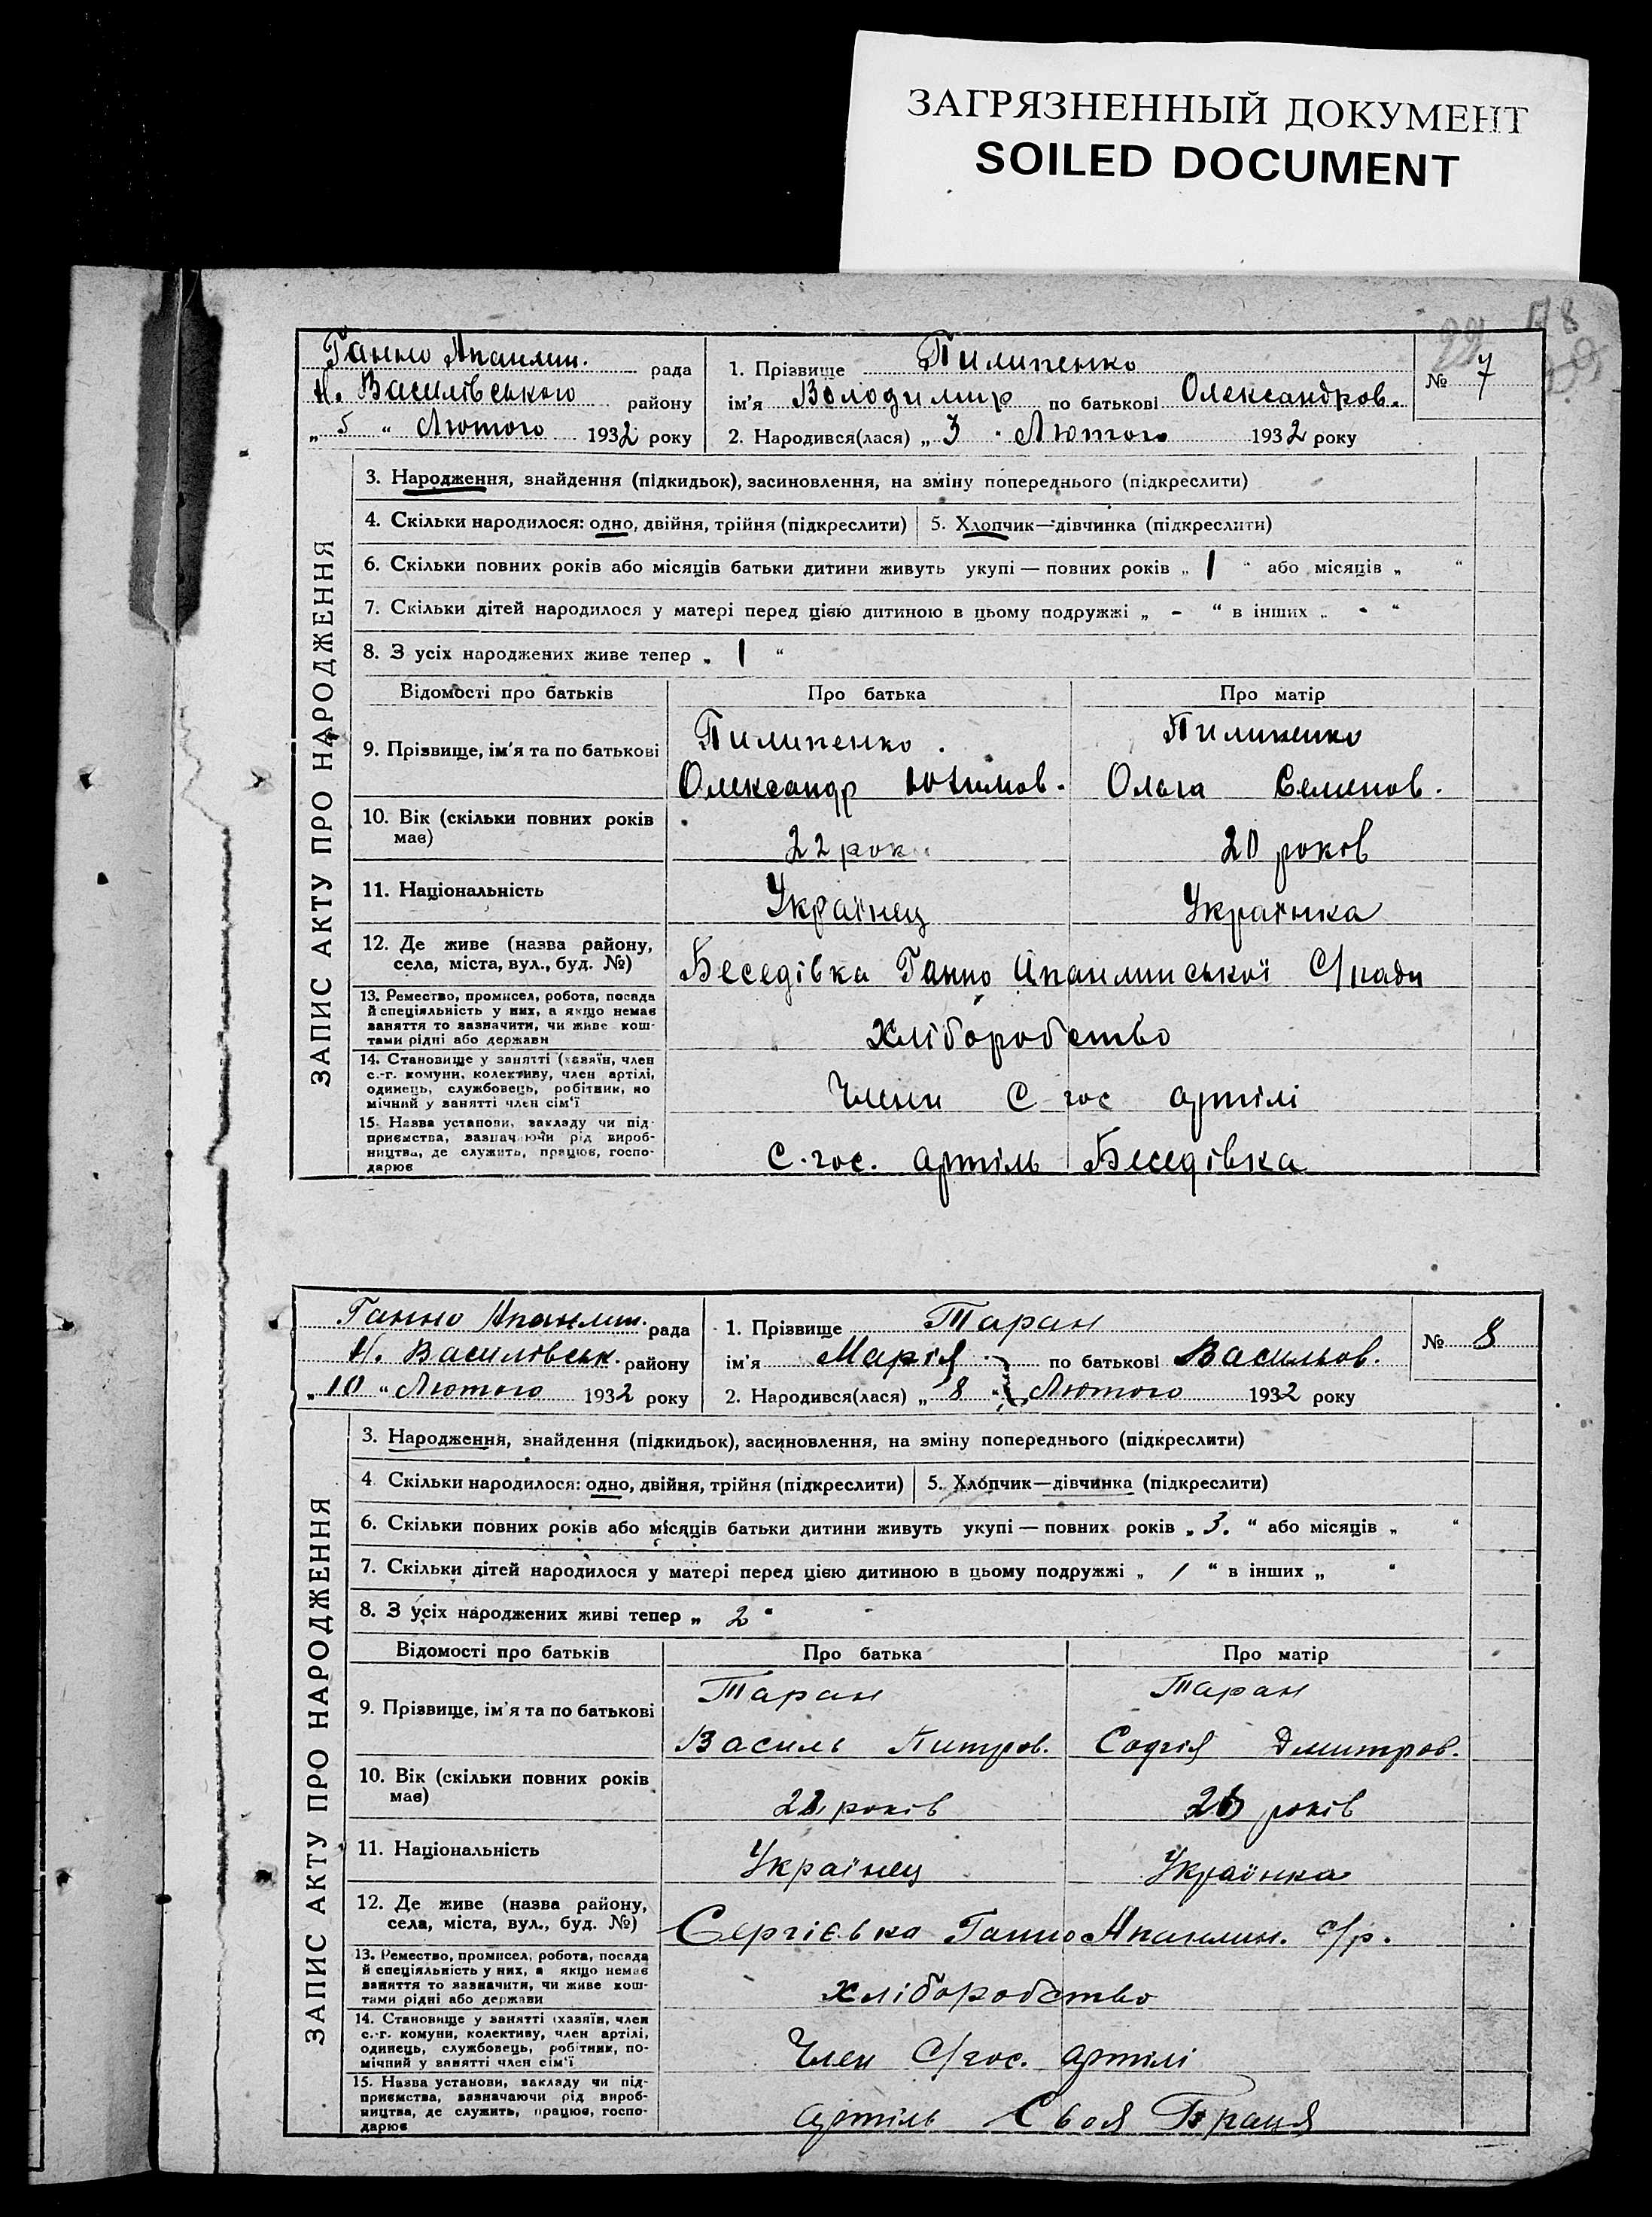 ЗАГРЯЗНЕННЫЙ ДОКУМЕНТ
SOILED DOCUMENT
Ганно рада
Н. Василівського району
„ 5 “ Лютого 1932 року
1. Прізвище Пилипенко
ім'я Володимир по батькові Олександров.
2. Народився(лася) „ 3 “ Лютого 1932 року
№ 7
ЗАПИС АКТУ ПРО НАРОДЖЕННЯ
3. Народження, знайдення (підкидьок), засиновлення, на зміну попереднього (підкреслити)
4. Скільки народилося: одно, двійня, трійня (підкреслити) 5. Хлопчик—дівчинка (підкреслити)
6. Скільки повних років або місяців батьки дитини живуть укупі — повних років „ 1 “ або місяців „ “
7. Скільки дітей народилося у матері перед цією дитиною в цьому подружжі „ - “ в інших „ - “
8. З усіх народжених живе тепер „ 1 “
Відомості про батьків Про батька Про матір
9. Прізвище, ім'я та по батькові
Пилипенко Пилипенко
Олександр Ольга Семенов.
10. Вік (скільки повних років має) 22 рок. 20 років
11. Національність Українец Українка
12. Де живе (назва району,
села, міста, вул., буд. №) Беседівка Ганно С/ради
13. Ремество, промисел, робота, посада
й спеціяльність у них, а якщо немає
заняття то зазначити, чи живе кош-
тами рідні або держави
хліборобство
14. Становище у занятті (хазяїн, член
с.-г. комуни, колективу, член артілі,
одинець, службовець, робітник, по
мічний у занятті член сім'ї
Члени С гос артілі
15. Назва установи, закладу чи під-
приємства, зазначаючи рід вироб-
ництва, де служить, працює, госпо-
дарює
С.гос. артіль Беседівка
Ганно рада
Н. Василівськ. району
„ 10 “ Лютого 1932 року
1. Прізвище Таран
ім'я Марія по батькові Васильов.
2. Народився(лася) „ 8 “ Лютого 1932 року
№ 8
ЗАПИС АКТУ ПРО НАРОДЖЕННЯ
3. Народження, знайдення (підкидьок), засиновлення, на зміну попереднього (підкреслити)
4. Скільки народилося: одно, двійня, трійня (підкреслити) 5. Хлопчик—дівчинка (підкреслити)
6. Скільки повних років або місяців батьки дитини живуть укупі — повних років „ 3. “ або місяців „ “
7. Скільки дітей народилося у матері перед цією дитиною в цьому подружжі „ 1 “ в інших „ “
8. З усіх народжених живі тепер „ 2 “
Відомості про батьків Про батька Про матір
9. Прізвище, ім'я та по батькові
Таран Таран
Василь Софія Дмитров.
10. Вік (скільки повних років має) років років
11. Національність Українец Українка
12. Де живе (назва району,
села, міста, вул., буд. №) Сергієвка Ганно с/р.
13. Ремество, промисел, робота, посада
й спеціяльність у них, а якщо немає
заняття то зазначити, чи живе кош-
тами рідні або держави
хліборобство
14. Становище у занятті (хазяїн, член
с.-г. комуни, колективу, член артілі,
одинець, службовець, робітник, по-
мічний у занятті член сім'ї
Член С/гос. артілі
15. Назва установи, закладу чи під-
приємства, зазначаючи рід вироб-
ництва, де служить, працює, госпо-
дарює
артіль Своя Праця